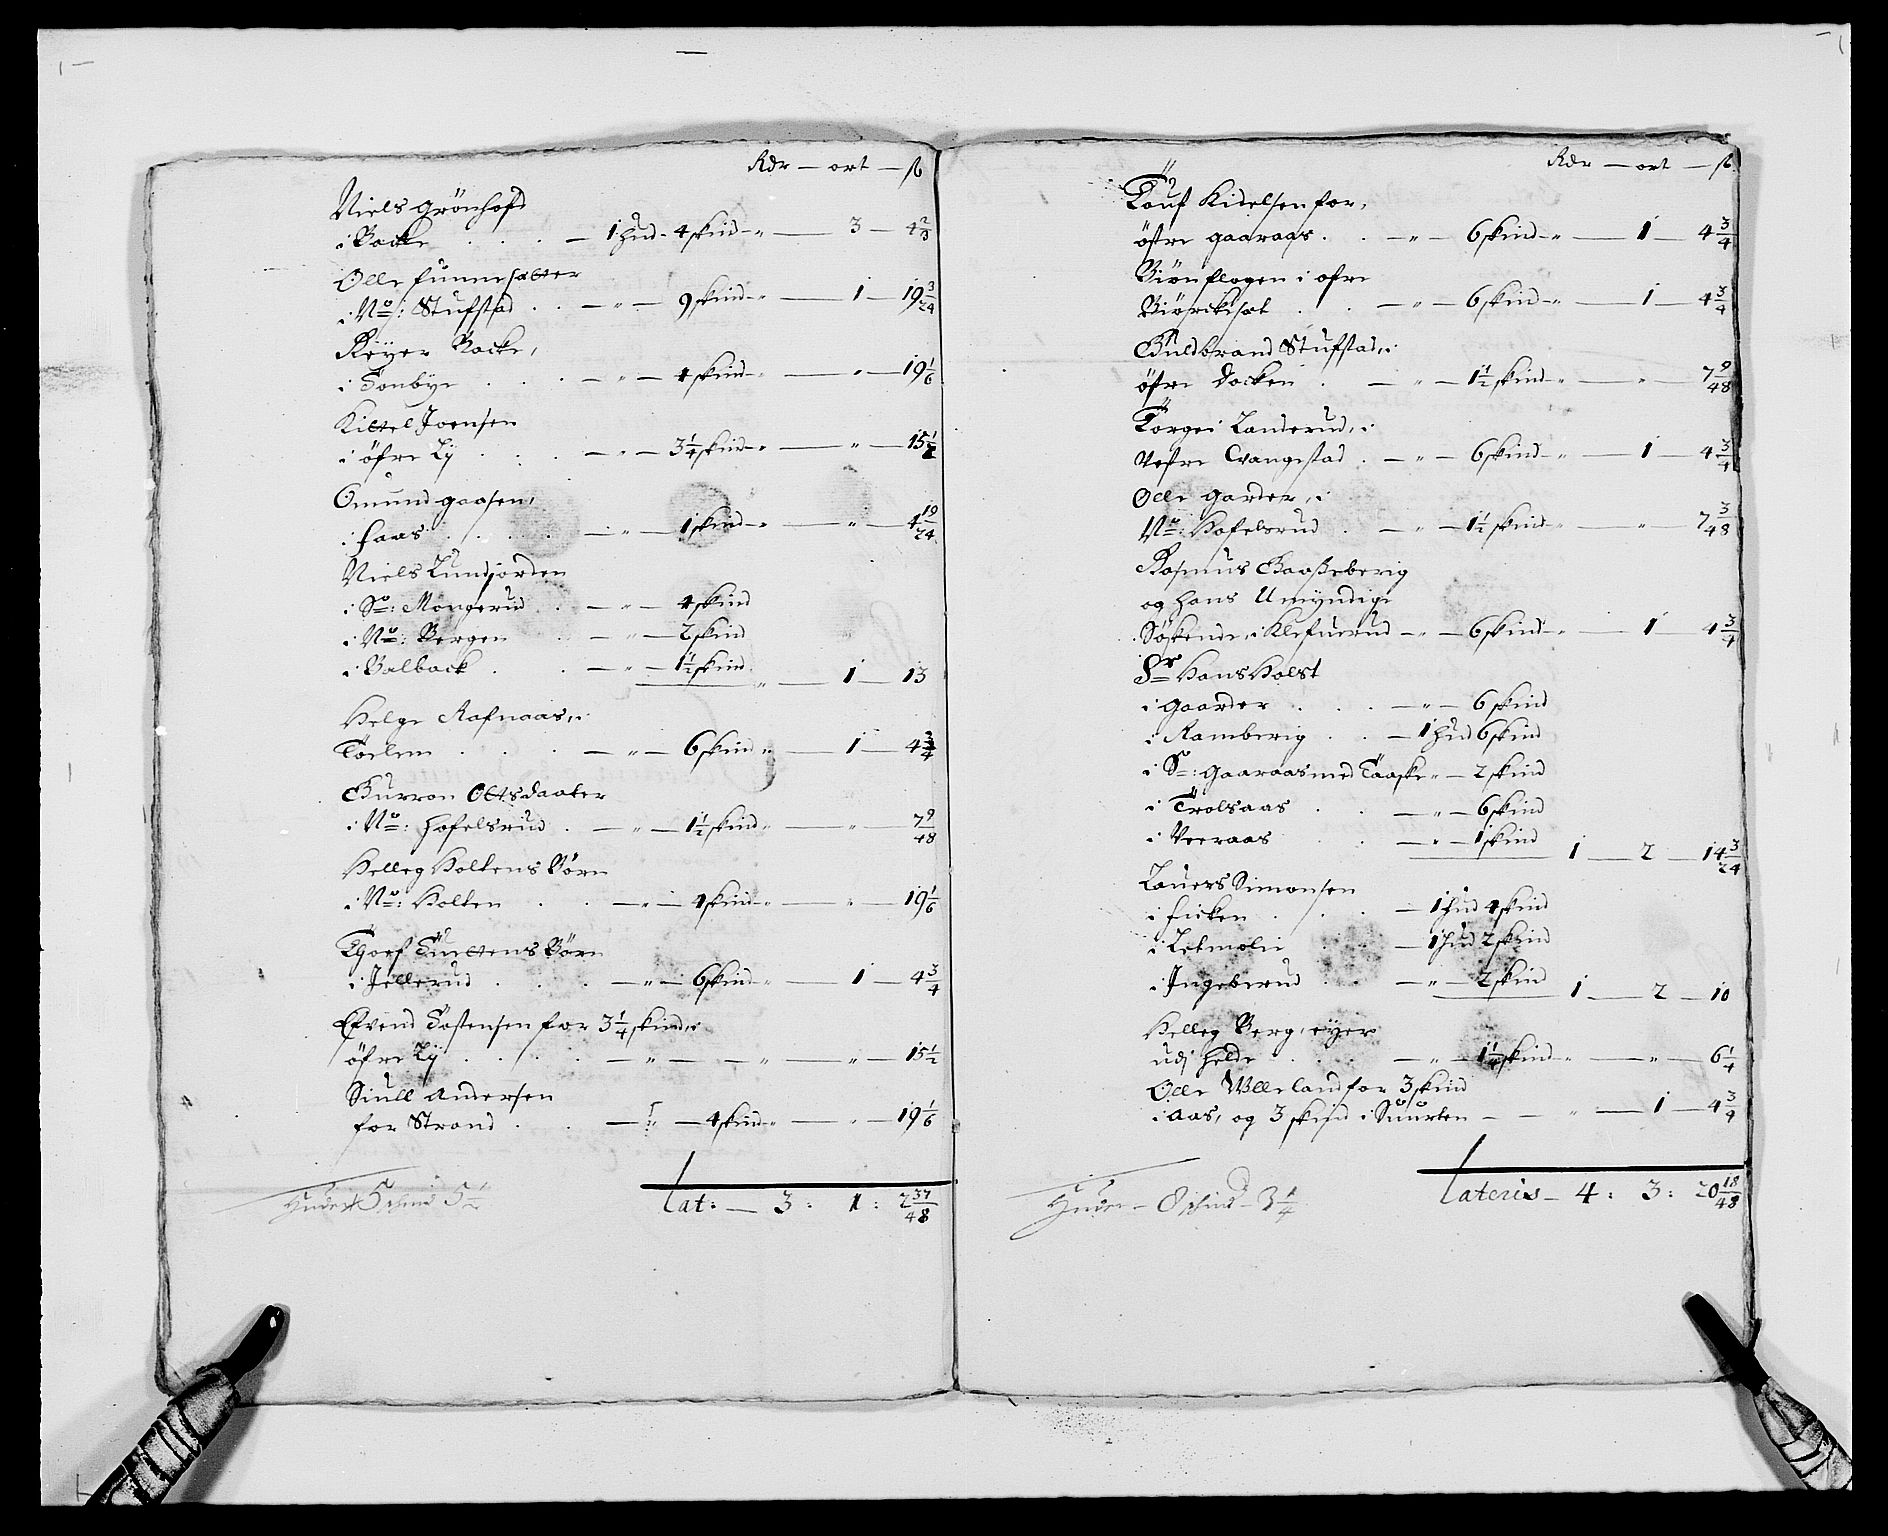 Rdr — ort — ß
Niels Grönhofd
i Backe . . . — 1 hud - 4 skind - „ — 3 — 4 2/3
Olle funnesætter
i No: Stufstad . . — „ — 9 skind - „ — 1 — 19 3/24
Reÿer Backe,
i Tonbÿe . . . — „ — 4 skind - „ — „ — 19 1/6
Kittel Joensen
i öfre Lÿ . . . — „ — 3 1/4 skind - „ — „ — 15 1/2
Omund gaasen,
i faas . . . . — „ — 1 skind - „ — „ — 4 19/24
Niels Lundjorden
i So: Mongerud . — „ — 4 skind
i No: Bergen . . — „ — 2 skind
i Balback . . — „ — 1 1/2 skind „ — 1 — 13
Helge Rafnaas, i
Töelem . . . — „ — 6 skind „ — 1 — 4 3/4
Gurron Ottsdaater
i No: Hofelsrud . — „ — 1 1/2 skind „ — „ — 7 9/48
Helleg Holtens Börn
i No: Holten . . — „ — 4 skind - „ — „ — 19 1/6
Tjoef Tufttens Börn
i Jellerud . . . — „ — 6 skind - „ — 1 — 4 3/4
Efvend Tostensen for 3 1/4 skind, i
öfre Lÿ . . . . — „ — — „ — „ — 15 1/2
Siull Andersen
for Strand . . — „ — 4 skind - „ — „ — 19 1/6
Lat: — 3 : 1 : 2 37/48
Huder 5 schind 5 1/2
Rdr — ort — ß
Touf Kidelsen for,
östre gaaraas . . — „ — 6 skind - „ — 1 — 4 3/4
Biönflogen i ofre
Biörckesæt . . — „ — 6 skind - „ — 1 — 4 3/4
Guldbrand Stufstad, i
öfre Docken . — „ — 1 1/2 skind - „ — „ — 7 9/48
Torgei Landerud, i
Vestre Evangestad . — „ — 6 skind - „ — 1 — 4 3/4
Olle garder, i
No: Hofelsrud . — „ — 1 1/2 skind - „ — „ — 7 3/48
Rasmus Baaßeberig
og hans Umÿndige
Söskende, i Klefuerud — „ — 6 skind - „ — 1 — 4 3/4
Sr Hans Holst
i gaarder . . . — „ — 6 skind
i Ramberig . . — 1 hud 6 skind
i So: gaaraas med Taaske „ — 2 skind
i Trolsaas . . — „ — 6 skind
i Veeraas . . — „ — 1 skind 1 — 2 — 14 3/24
Lauers Simonsen
i ficken . . . — 1 hud 4 skind
i Letmolie . . — 1 hud 2 skind
i Ingeberud . . — „ — 2 skind 1 — 2 — 10
Helleg Berg, eÿer
udj Helde . . . — „ — 1 1/2 skind - „ — „ — 6 1/4
Olle Ulleland for 3 skind
i Aas, og 3 skind i Suurten — — „ — 1 — 4 3/4
Lateris — 4 : 3 : 20 18/48
Huder - 8 schind - 3 1/4